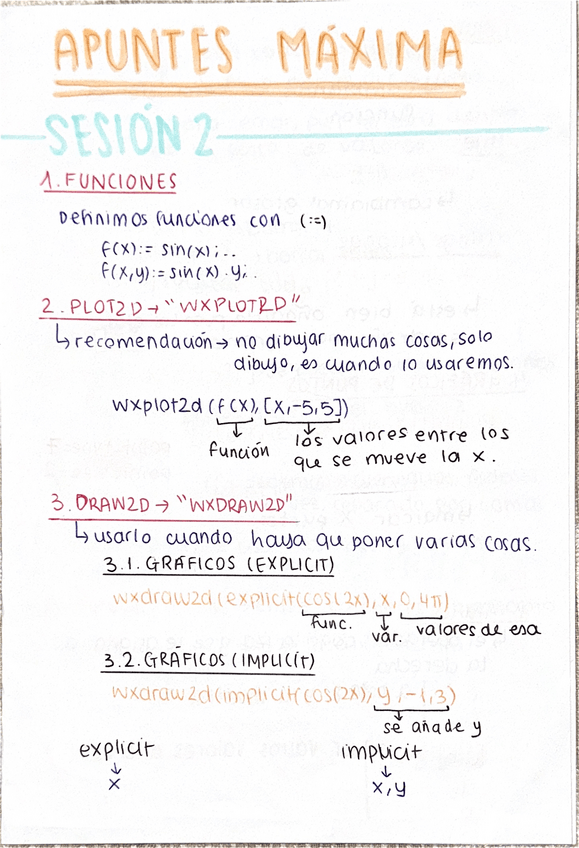 APUNTES MÁXIMA
SESIÓN 2
1. FUNCIONES
Definimos funciones con (:=)
f(x):= sin(x);..
f(x,y):= sin(x)·y;.
2. PLOT2D → "WXPLOT2D"
↳ recomendación → no dibujar muchas cosas, solo
dibujo, es cuando lo usaremos.
wxplot2d (f(x), [x,-5,5])
función
los valores entre los
que se mueve la x.
3. DRAW2D → "WXDRAW2D"
↳ usarlo cuando haya que poner varias cosas.
3.1. GRÁFICOS (EXPLICIT)
wxdraw2d(explicit(cos(2x), x, 0, 4π)
func.
var.
valores de esa
3.2. GRÁFICOS (IMPLICIT)
wxdraw2d(implicit(cos(2x), y, -1, 3)
se añade y
explicit implicit
↓ ↓
x x, y